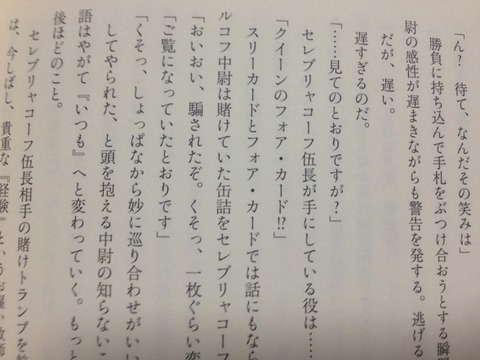 「ん?　待て、なんだその笑みは」
勝負に持ち込んで手札をぶつけ合おうとする瞬
尉の感性が遅まきながらも警告を発する。逃げる
だが、遅い。
遅すぎるのだ。
「……見てのとおりですが?」
セレブリャコーフ伍長が手にしている役は……
「クイーンのフォア・カード!?」
スリーカードとフォア・カードでは話にもなら
ルコフ中尉は賭けていた缶詰をセレブリャコーフ
「おいおい、騙されたぞ。くそっ、一枚ぐらい変
「ご覧になっていたとおりです」
「くそっ、しょっぱなから妙に巡り合わせがいい
してやられた、と頭を抱える中尉の知らないこ
語はやがて『いつも』へと変わっていく。もっと
後ほどのこと。
セレブリャコーフ伍長相手の賭けトランプを
は、今しばし、貴重な『経験』という